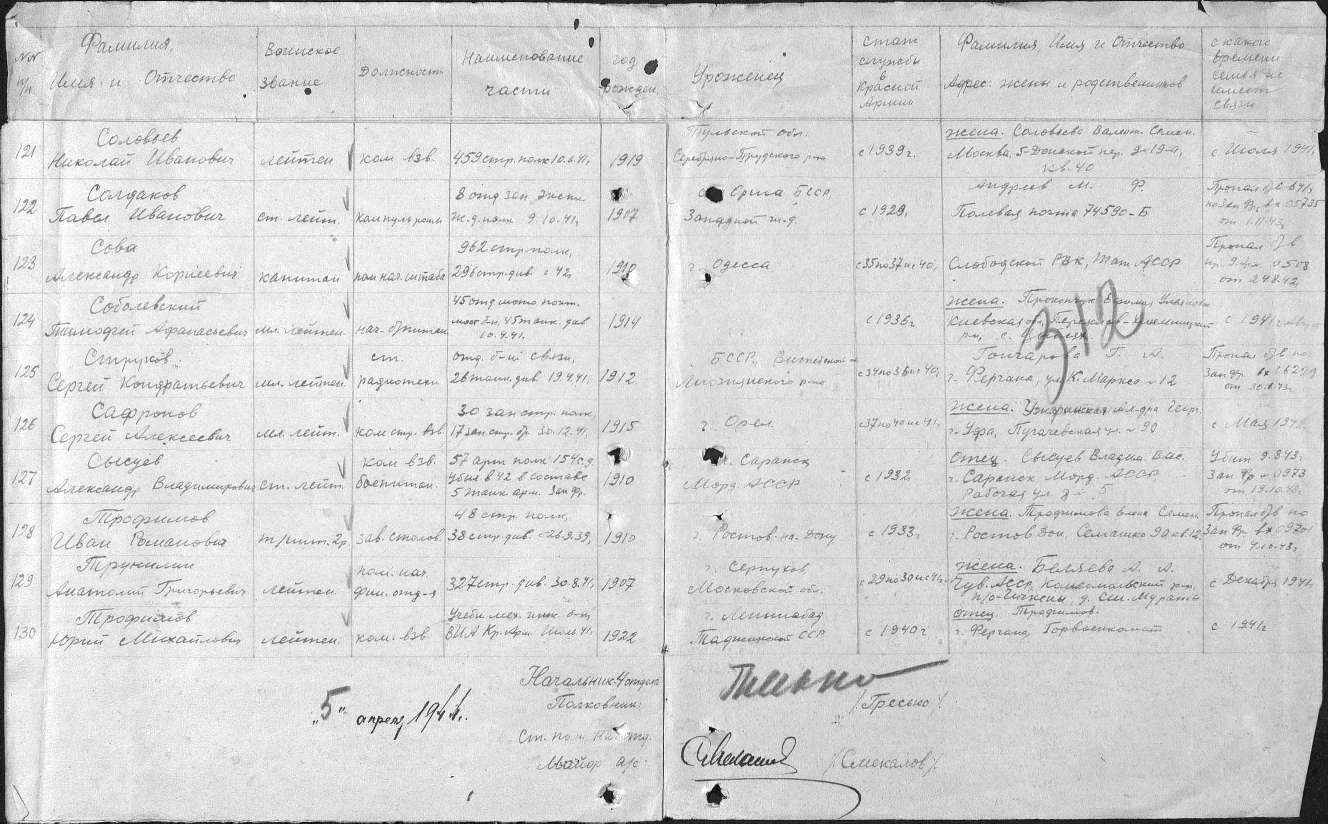 №№ п/п
Фамилия, Имя и Отчество
Воинское звание
Должность
Наименование части
год рожден.
Уроженец
стаж службы в Красной Армии
Фамилия, Имя и Отчество Адрес: жены и родственников
с какого времени семья не имеет связи
121
Соловьев
Николай Иванович
лейтен
ком. взв.
459 стр. полк 10.6.41,
1919
Тульской обл.
Серебряно-Прудского р-на
с 1939 г.
жена. Соловьева Валент. Семен.
Москва, 5-Донской пер. д-19-а,
кв. 40
с Июля 1941,
122
Солдаков
Павел Иванович
ст. лейт.
8 отд зап. экспл.
ж.д. полк 9.10.41,
1907
Орша БССР
Западной ж.д.
с 1929,
Андреев М. Ф.
Полевая почта 74590-Б
Пропал б/в 6.41,
от 1.11.43,
123
Сова
Александр Корнеевич
капитан
пом. нач. штаба
962 стр. полк,
296 стр. див 42,
1918
г. Одесса
с 35 по 37 и с 40,
Слободской РВК, Тат. АССР
Пропал б/в
от 24.8.42,
124
Соболевский
Тимофей Афанасьевич
мл. лейтен.
45 отд мото понт.
мост б-н, 45 танк. див
10.4.41.
1914
с 1936 г
жена.
Киевская
с 1941 г.
125
Струков
Сергей Кондратьевич
мл. лейтен
ст.
радиотехн
отд. б-н связи,
26 танк. див 19.4.41,
1912
БССР, Витебской
Лиозненского р-на
с 34 по 36 и с 40,
Гончарова Т. А.
г. Фергана, ул. К. Маркса № 12
Пропал б/в по
126
Сафронов
Сергей Алексеевич
мл. лейт.
ком стр. взв.
30 зап стр. полк,
17 зап стр. бр. 30.12.41,
1915
г. Орел
с 37 по 40 и с 41,
жена.
г. Уфа, Пугачевская ул. № 90
с Мая 1942,
127
Сысуев
Александр Владимирович
ст. лейт.
ком взв.
боепитан.
57 арт полк 154 с.д.
убыл в 42 в составе
5 танк арм. Зап Фр.
1910
Саранск
Морд. АССР
с 1932
отец. Сысуев Владим. Вас.
г. Саранск, Морд. АССР
Рабочая ул. д-5
Убит 9.8.43,
от 19.10.43,
128
Трофимов
Иван Романович
т/инт. 2р.
зав. столов.
48 стр. полк,
38 стр. див с 26.9.39,
1910
г. Ростов-на-Дону
с 1933,
жена. Трофимова Елена Семен.
г. Ростов Дон, Семашко 90 кв 12,
Пропал б/в по
от 4.10.43,
129
Трунилин
Анатолий Григорьевич
лейтен.
пом. нач.
фин. отд-я
327 стр. див 30.8.41,
1907
г. Серпухов
Московской обл.
с 29 по 30 и с 41,
жена. Беляева А. А.
Чув. АССР, Комсомольский р-н,
с Декабря 1941,
130
Трофимов
Юрий Михайлович
лейтен.
ком. взв
ВИА Кр. Арм. Июль 41,
1922
г. Ленинабад
Таджикской ССР
с 1940 г.
отец. Трофимов.
г. Фергана, Горвоенкомат
с 1941 г
312
„5“ апреля 1944 г.
Начальник 4 отдела
Полковник:
/Гресько/.
Ст. пом. нач. отд.
Майор а/с:
/Смекалов/.